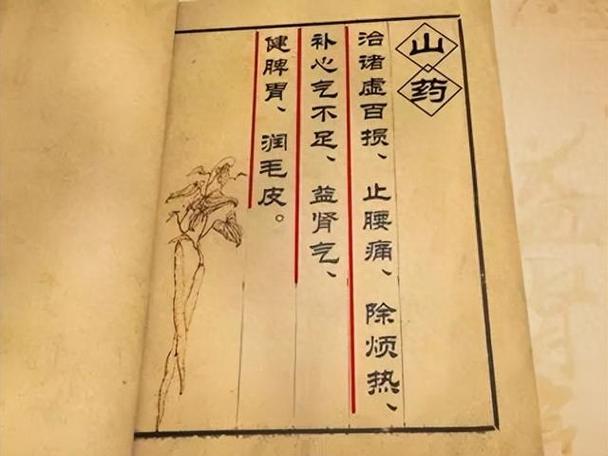 山药
治诸虚百损、止腰痛、除烦热、
补心气不足、益肾气、
健脾胃、润毛皮。